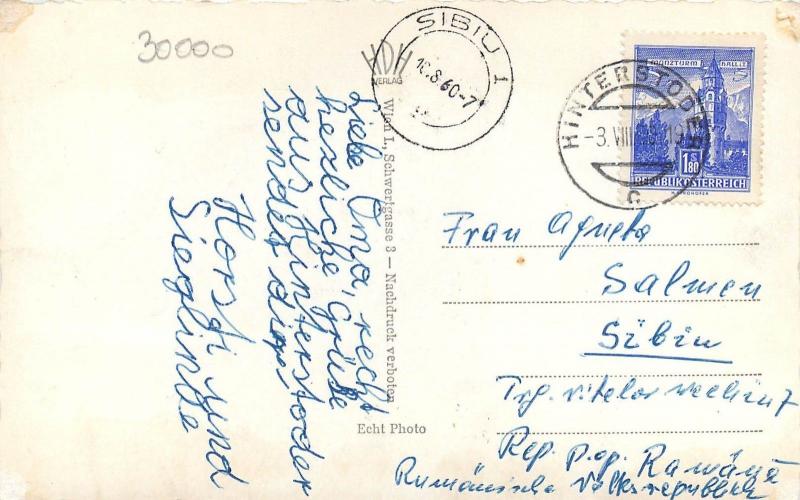 30000
Liebe Oma, recht
herzliche Grüße
aus Hinterstoder
senden dir
Horsti und
Sieglinde
HDH
VERLAG
Wien I., Schwertgasse 3 — Nachdruck verboten
Echt Photo
SIBIU 1
16.8.60-7
HINTERSTODER
-3.VIII
c
MÜNZTURM HALL I.T.
S 1.80
REPUBLIK ÖSTERREICH
Frau Agneta
Salmen
Sibiu
Trg.
Rep. Pop. Romănă
Rumänische Volksrepublik